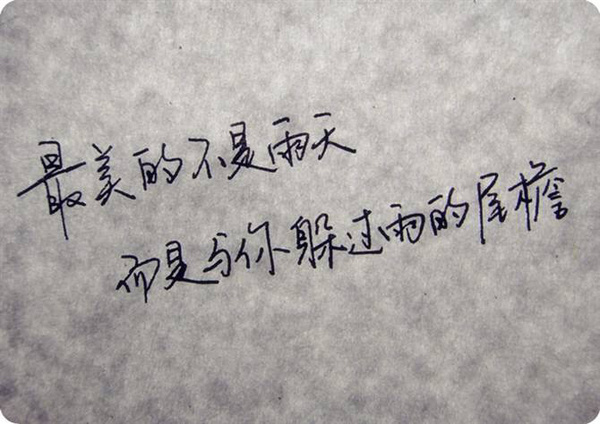 最美的不是雨天
而是与你躲过雨的尾檐